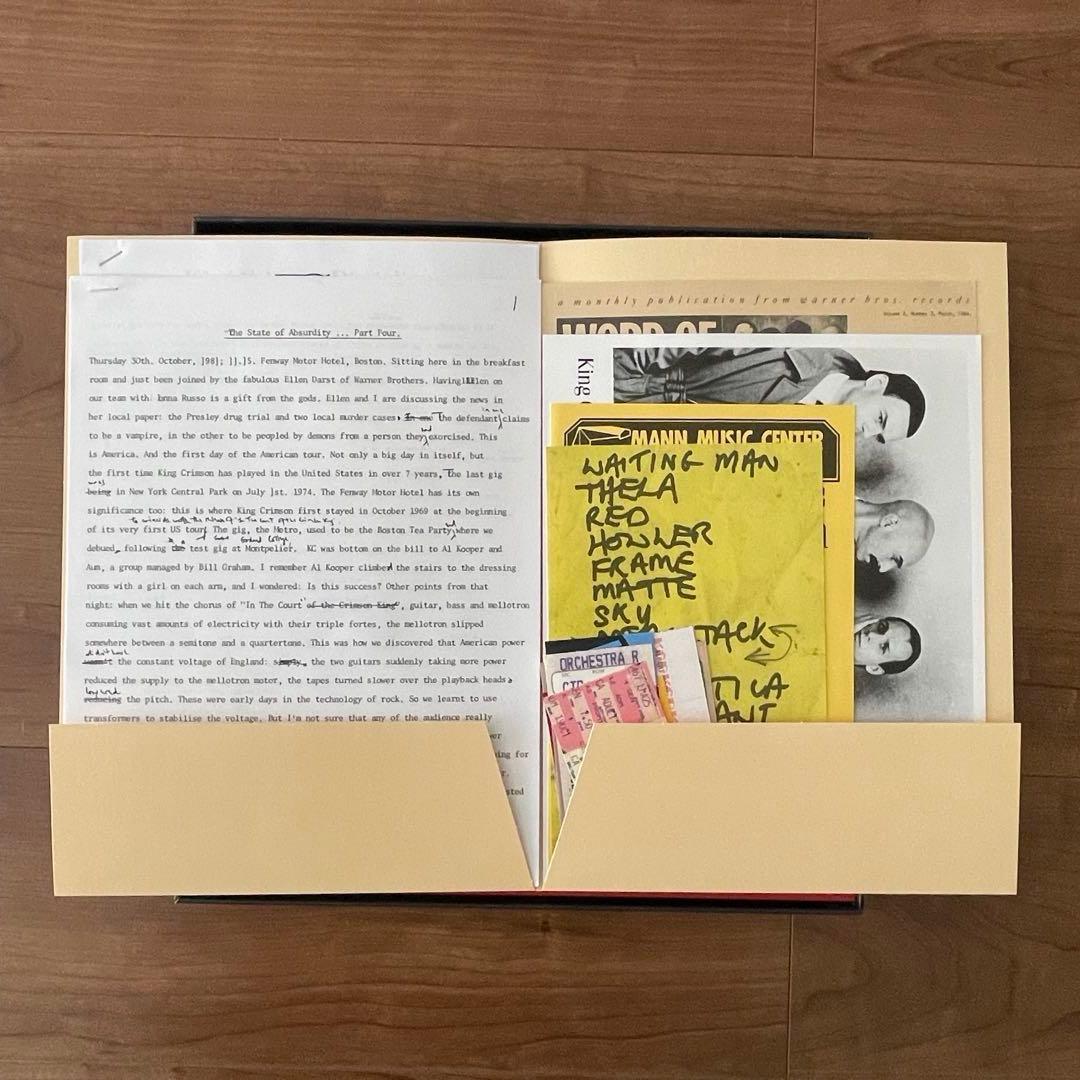 1
"The State of Absurdity ... Part Four.
Thursday 30th. October, ]98]; ]].]5. Fenway Motor Hotel, Boston. Sitting here in the breakfast
room and just been joined by the fabulous Ellen Darst of Warner Brothers. Having Ellen on
our team with Lonna Russo is a gift from the gods. Ellen and I are discussing the news in
her local paper: the Presley drug trial and two local murder cases. In one The defendant claims
to be a vampire, in the other to be peopled by demons from a person they exorcised. This
is America. And the first day of the American tour. Not only a big day in itself, but
the first time King Crimson has played in the United States in over 7 years. The last gig
was
being in New York Central Park on July ]st. 1974. The Fenway Motor Hotel has its own
significance too: this is where King Crimson first stayed in October 1969 at the beginning
of its very first US tour. The gig, the Metro, used to be the Boston Tea Party where we
debued, following the test gig at Montpelier. KC was bottom on the bill to Al Kooper and
Aum, a group managed by Bill Graham. I remember Al Kooper climbed the stairs to the dressing
rooms with a girl on each arm, and I wondered: Is this success? Other points from that
night: when we hit the chorus of "In The Court" of the Crimson King", guitar, bass and mellotron
consuming vast amounts of electricity with their triple fortes, the mellotron slipped
somewhere between a semitone and a quartertone. This was how we discovered that American power
didn't have
the constant voltage of England: simply, the two guitars suddenly taking more power
reduced the supply to the mellotron motor, the tapes turned slower over the playback heads,
reducing the pitch. These were early days in the technology of rock. So we learnt to use
transformers to stabilise the voltage. But I'm not sure that any of the audience really
a monthly publication from warner bros. records
WORD OF
King
MANN MUSIC CENTER
WAITING MAN
THELA
RED
HOWLER
FRAME
MATTE
SKY
TACK
TICA
ANT
ORCHESTRA R